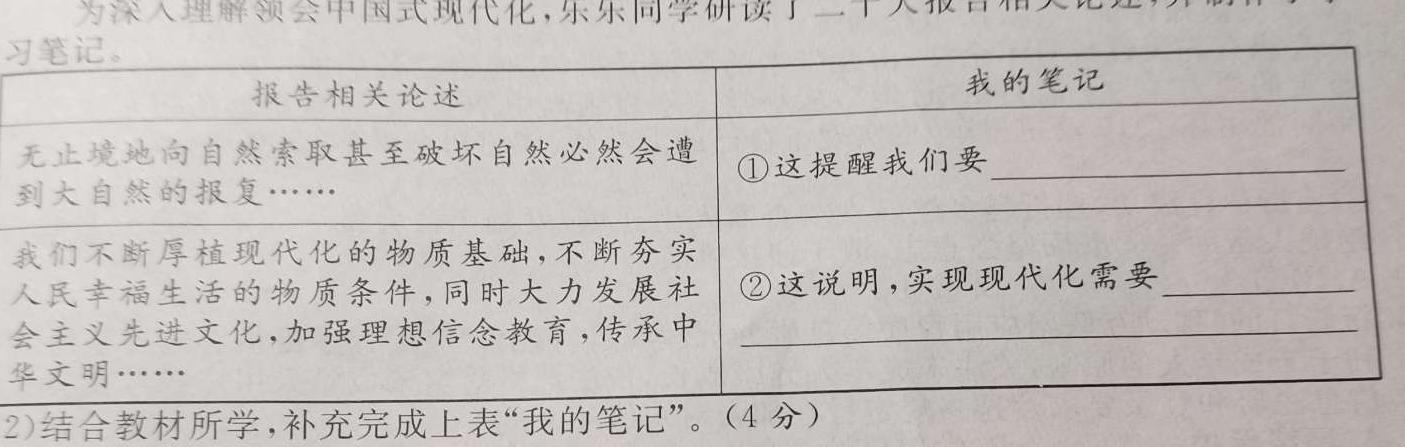 为深入理解领会中国式现代化,乐乐同学研读了二十大报告相关论述,并制作了学
习笔记。
报告相关论述
我的笔记
无止境地向自然索取甚至破坏自然必然会遭
到大自然的报复……
①这提醒我们要
我们不断厚植现代化的物质基础,不断夯实
人民幸福生活的物质条件,同时大力发展社
会主义先进文化,加强理想信念教育,传承中
华文明……
②这说明,实现现代化需要
2)结合教材所学,补充完成上表“我的笔记”。(4分)